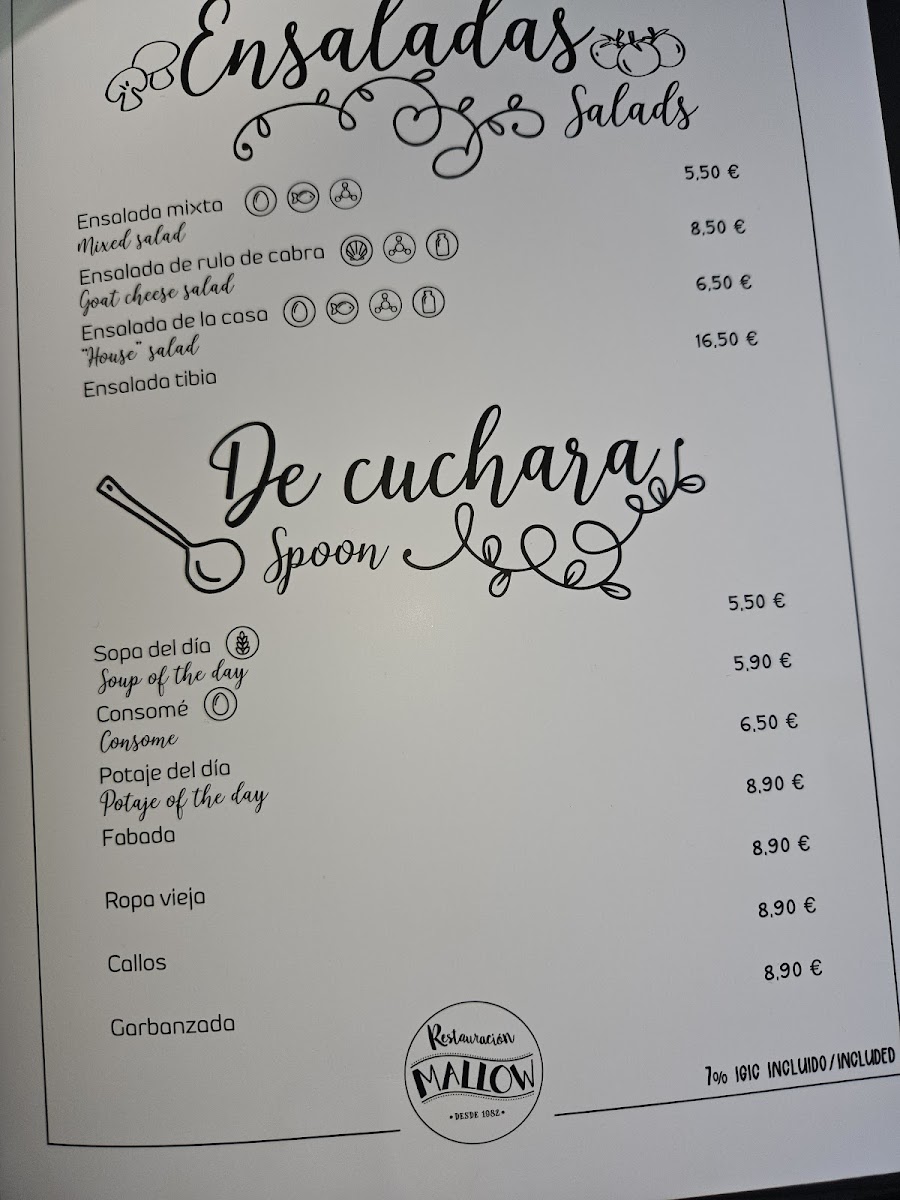 Ensaladas
Salads
Ensalada mixta 5,50 €
Mixed salad
Ensalada de rulo de cabra 8,50 €
Goat cheese salad
Ensalada de la casa 6,50 €
"House" salad
Ensalada tibia 16,50 €
De cuchara
Spoon
Sopa del día 5,50 €
Soup of the day
Consomé 5,90 €
Consome
Potaje del día 6,50 €
Potaje of the day
Fabada 8,90 €
Ropa vieja 8,90 €
Callos 8,90 €
Garbanzada 8,90 €
Restauración
MALLOW
• DESDE 1982 •
7% IGIC INCLUIDO / INCLUDED